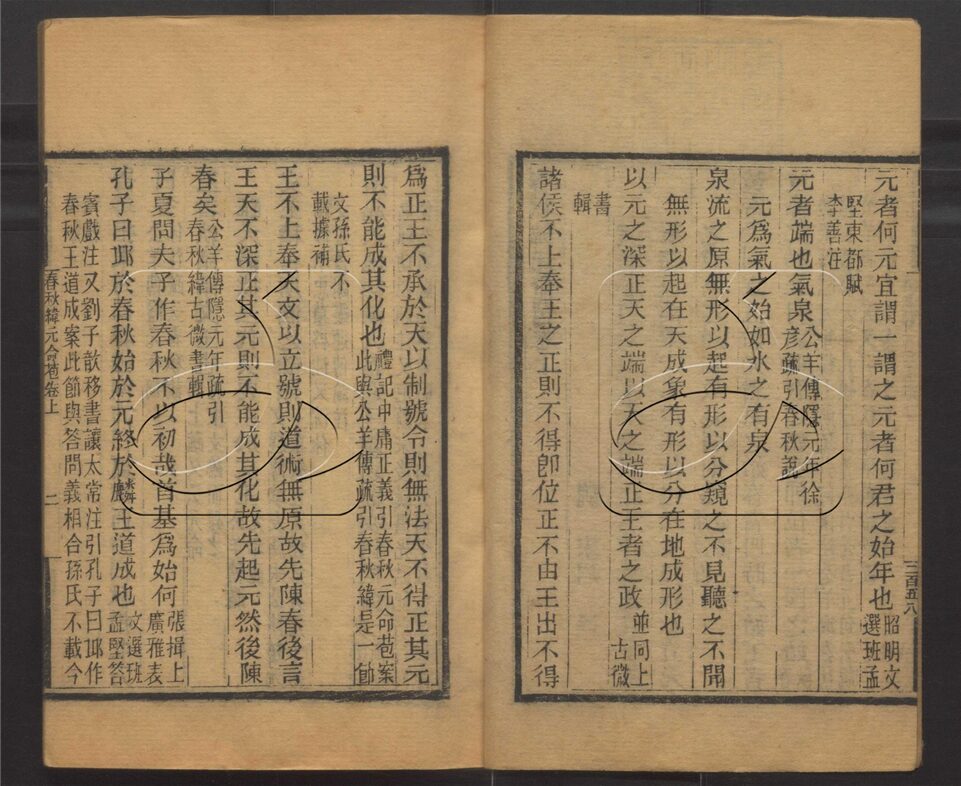 元者何元宜謂一謂之元者何君之始年也昭明文選班孟
堅東都賦李善注
元者端也氣泉公羊傳隱元年徐彥疏引春秋說
元爲氣之始如水之有泉
泉流之原無形以起有形以分窺之不見聽之不聞
無形以起在天成象有形以分在地成形也
以元之深正天之端以天之端正王者之政並同上古微
書輯
諸侯不上奉王之正則不得卽位正不由王出不得
三百五八
爲正王不承於天以制號令則無法天不得正其元
則不能成其化也禮記中庸正義引春秋元命苞案此與公羊傳疏引春秋緯是一節
文孫氏不載據補
王不上奉天文以立號則道術無原故先陳春後言
王天不深正其元則不能成其化故先起元然後陳
春矣公羊傳隱元年疏引春秋緯古微書輯
子夏問夫子作春秋不以初哉首基爲始何張揖上廣雅表
孔子曰邱於春秋始於元終於麟王道成也文選班孟堅答
賓戲注又劉子歆移書讓太常注引孔子曰邱作春秋王道成案此節與答問義相合孫氏不載今
春秋緯元命苞卷上
二